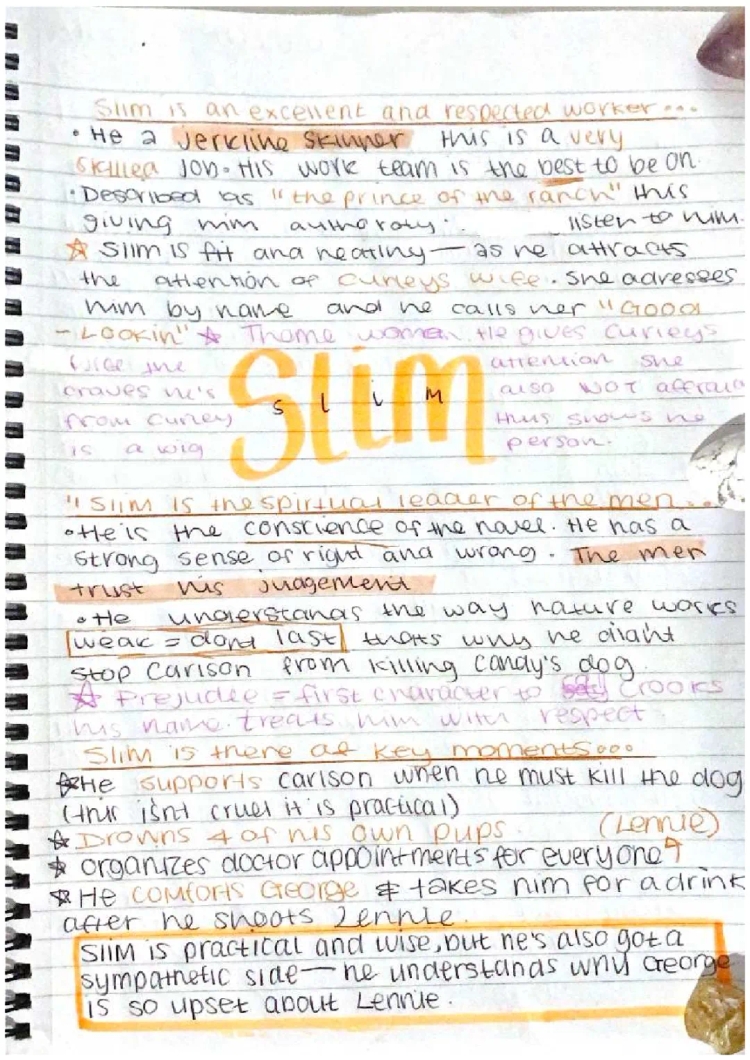 Slim is an excellent and respected worker...
• He a Jerkline Skinner this is a very
skilled Job. His work team is the best to be on.
• Described as "the prince of the ranch" this
giving him authoroty. listen to him.
☆ Slim is fit and healthy — as he attracts
the attention of curleys wife. She adresses
him by name and he calls her "Good
- Lookin" ☆ Theme woman. He gives Curleys
wife the attention she
craves he's also NOT affraid
from curley this shows he
is a wig person.
Slim
S l i M
" Slim is the spirtual leader of the men...
• He is the conscience of the novel. He has a
strong sense of right and wrong. The men
trust his judgement
• He understands the way nature works
weak = dont last thats why he didnt
stop Carlson from killing candy's dog.
☆ Prejudice = first character to Crooks
his name. treats him with respect
Slim is there at key moments...
☆ He supports carlson when he must kill the dog
(this isnt cruel it is practical)
☆ Drowns 4 of his own pups. (Lennie)
☆ organizes doctor appointments for everyone
☆ He comforts George & takes him for a drink
after he shoots Lennie.
Slim is practical and wise, but he's also got a
sympathetic side — he understands why George
is so upset about Lennie.